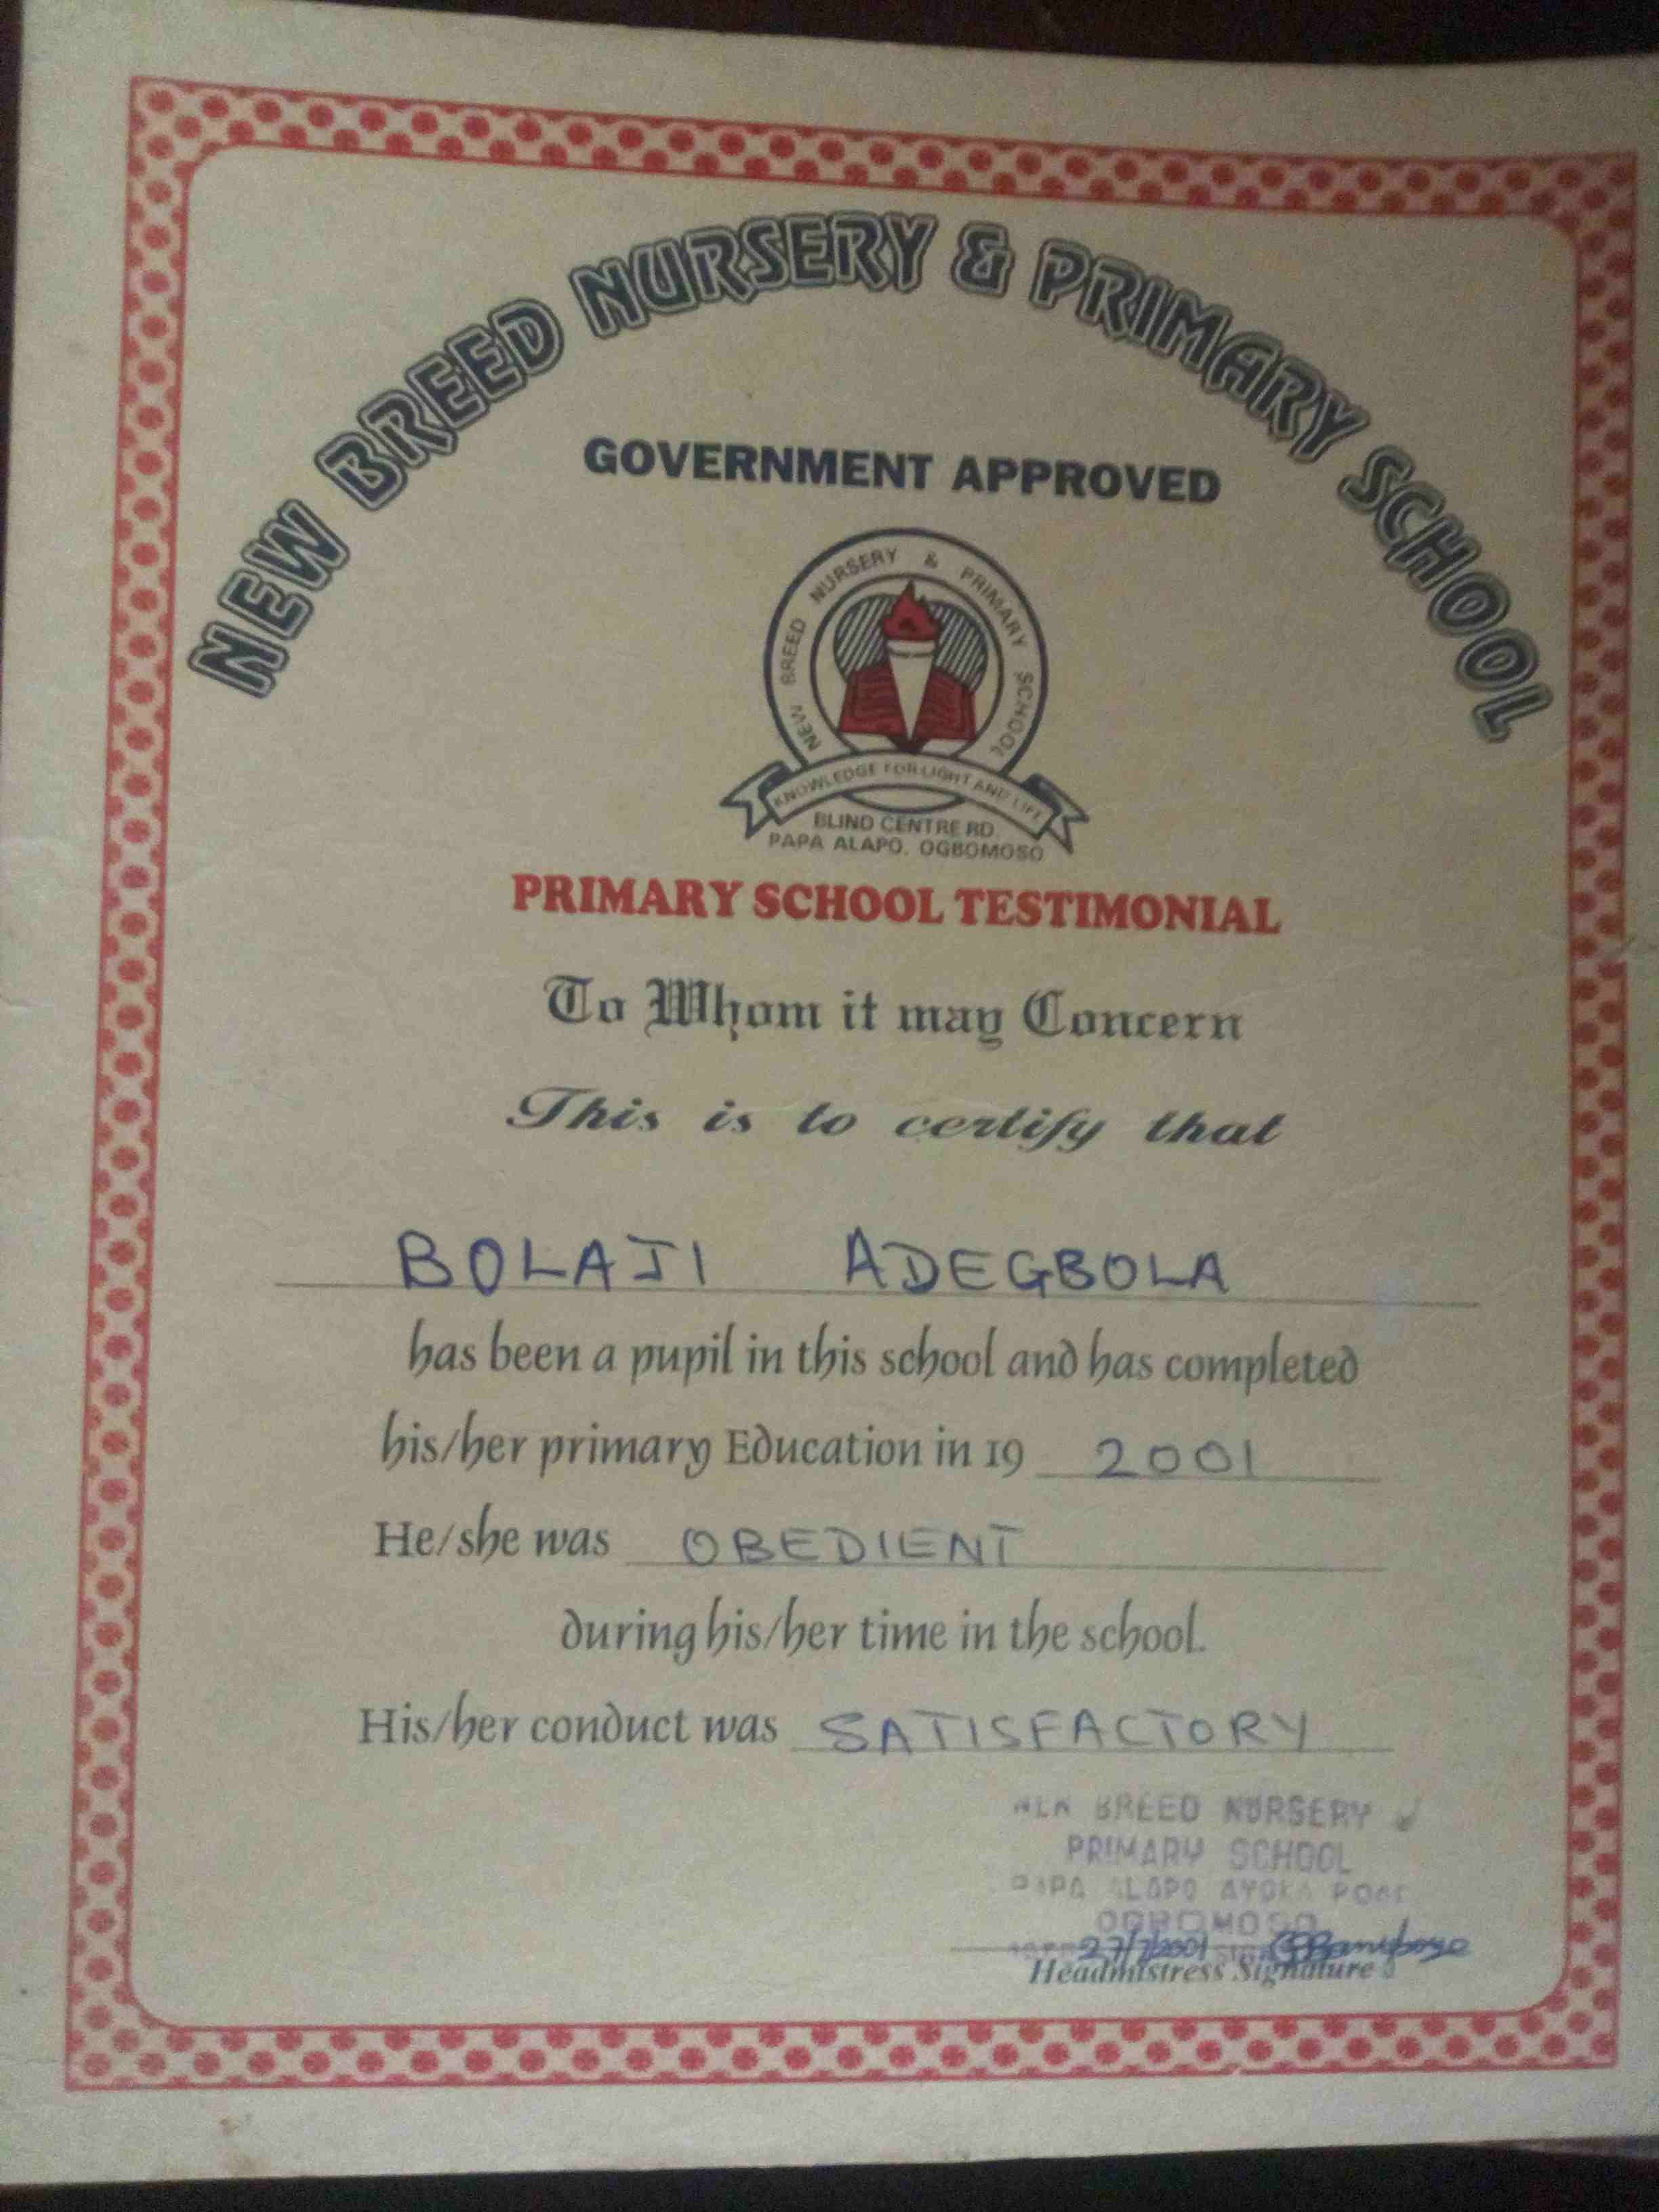 NEW BREED NURSERY & PRIMARY SCHOOL
GOVERNMENT APPROVED
NEW BREED NURSERY & PRIMARY SCHOOL
KNOWLEDGE FOR LIGHT AND LIFE
BLIND CENTRE RD.
PAPA ALAPO, OGBOMOSO
PRIMARY SCHOOL TESTIMONIAL
To Whom it may Concern
This is to certify that
BOLAJI ADEGBOLA
has been a pupil in this school and has completed
his/her primary Education in 19 2001
He/she was OBEDIENT
during his/her time in the school.
His/her conduct was SATISFACTORY
BREED NURSERY
PRIMARY SCHOOL
PAPA ALAPO
OGBOMOSO
27/7/2001
Headmistress Signature